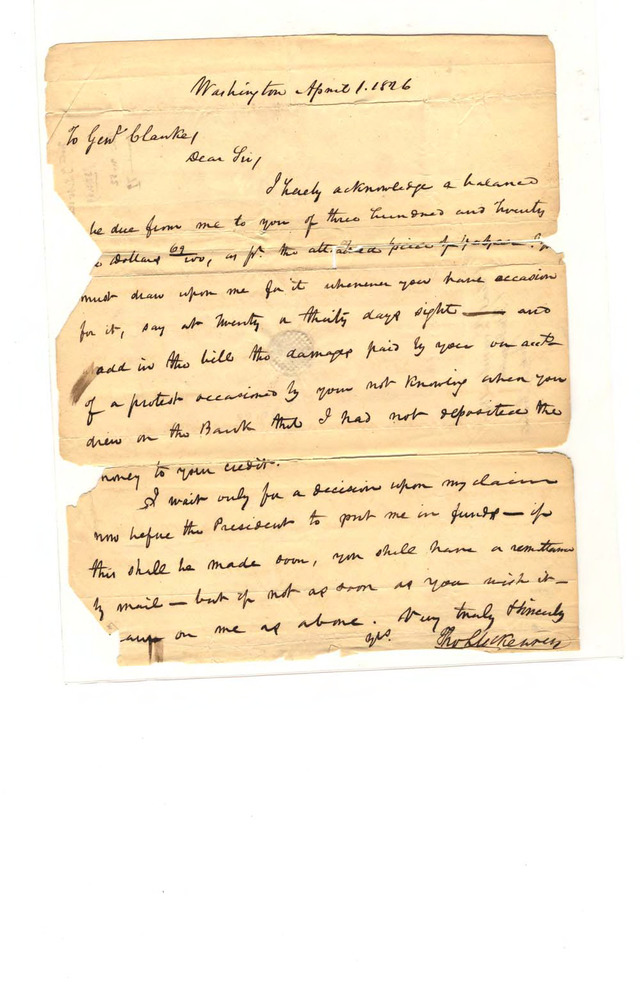 Washington April 1. 1826
To Genl Clarke,
Dear Sir,
I hereby acknowledge a balance
be due from me to you of three hundred and twenty
dollars 69/100, as pr. the attached piece of
must draw upon me for it whenever you have occasion
for it, say at twenty or thirty days sight — and
add in the bill the damages paid by you on acct
of a protest occasioned by your not knowing when you
drew on the Bank that I had not deposited the
money to your credit.
I wait only for a decision upon my claim
now before the President to put me in funds — if
this shall be made soon, you shall have a remittance
by mail — but if not as soon as you wish it —
on me as above. Very truly & sincerely
yrs. Tho L McKenney